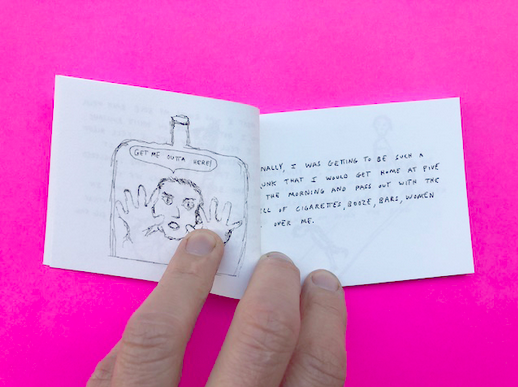 GET ME OUTTA HERE!
NALLY, I WAS GETTING TO BE SUCH A
UNK THAT I WOULD GET HOME AT FIVE
THE MORNING AND PASS OUT WITH THE
ELL OF CIGARETTES, BOOZE, BARS, WOMEN
OVER ME.